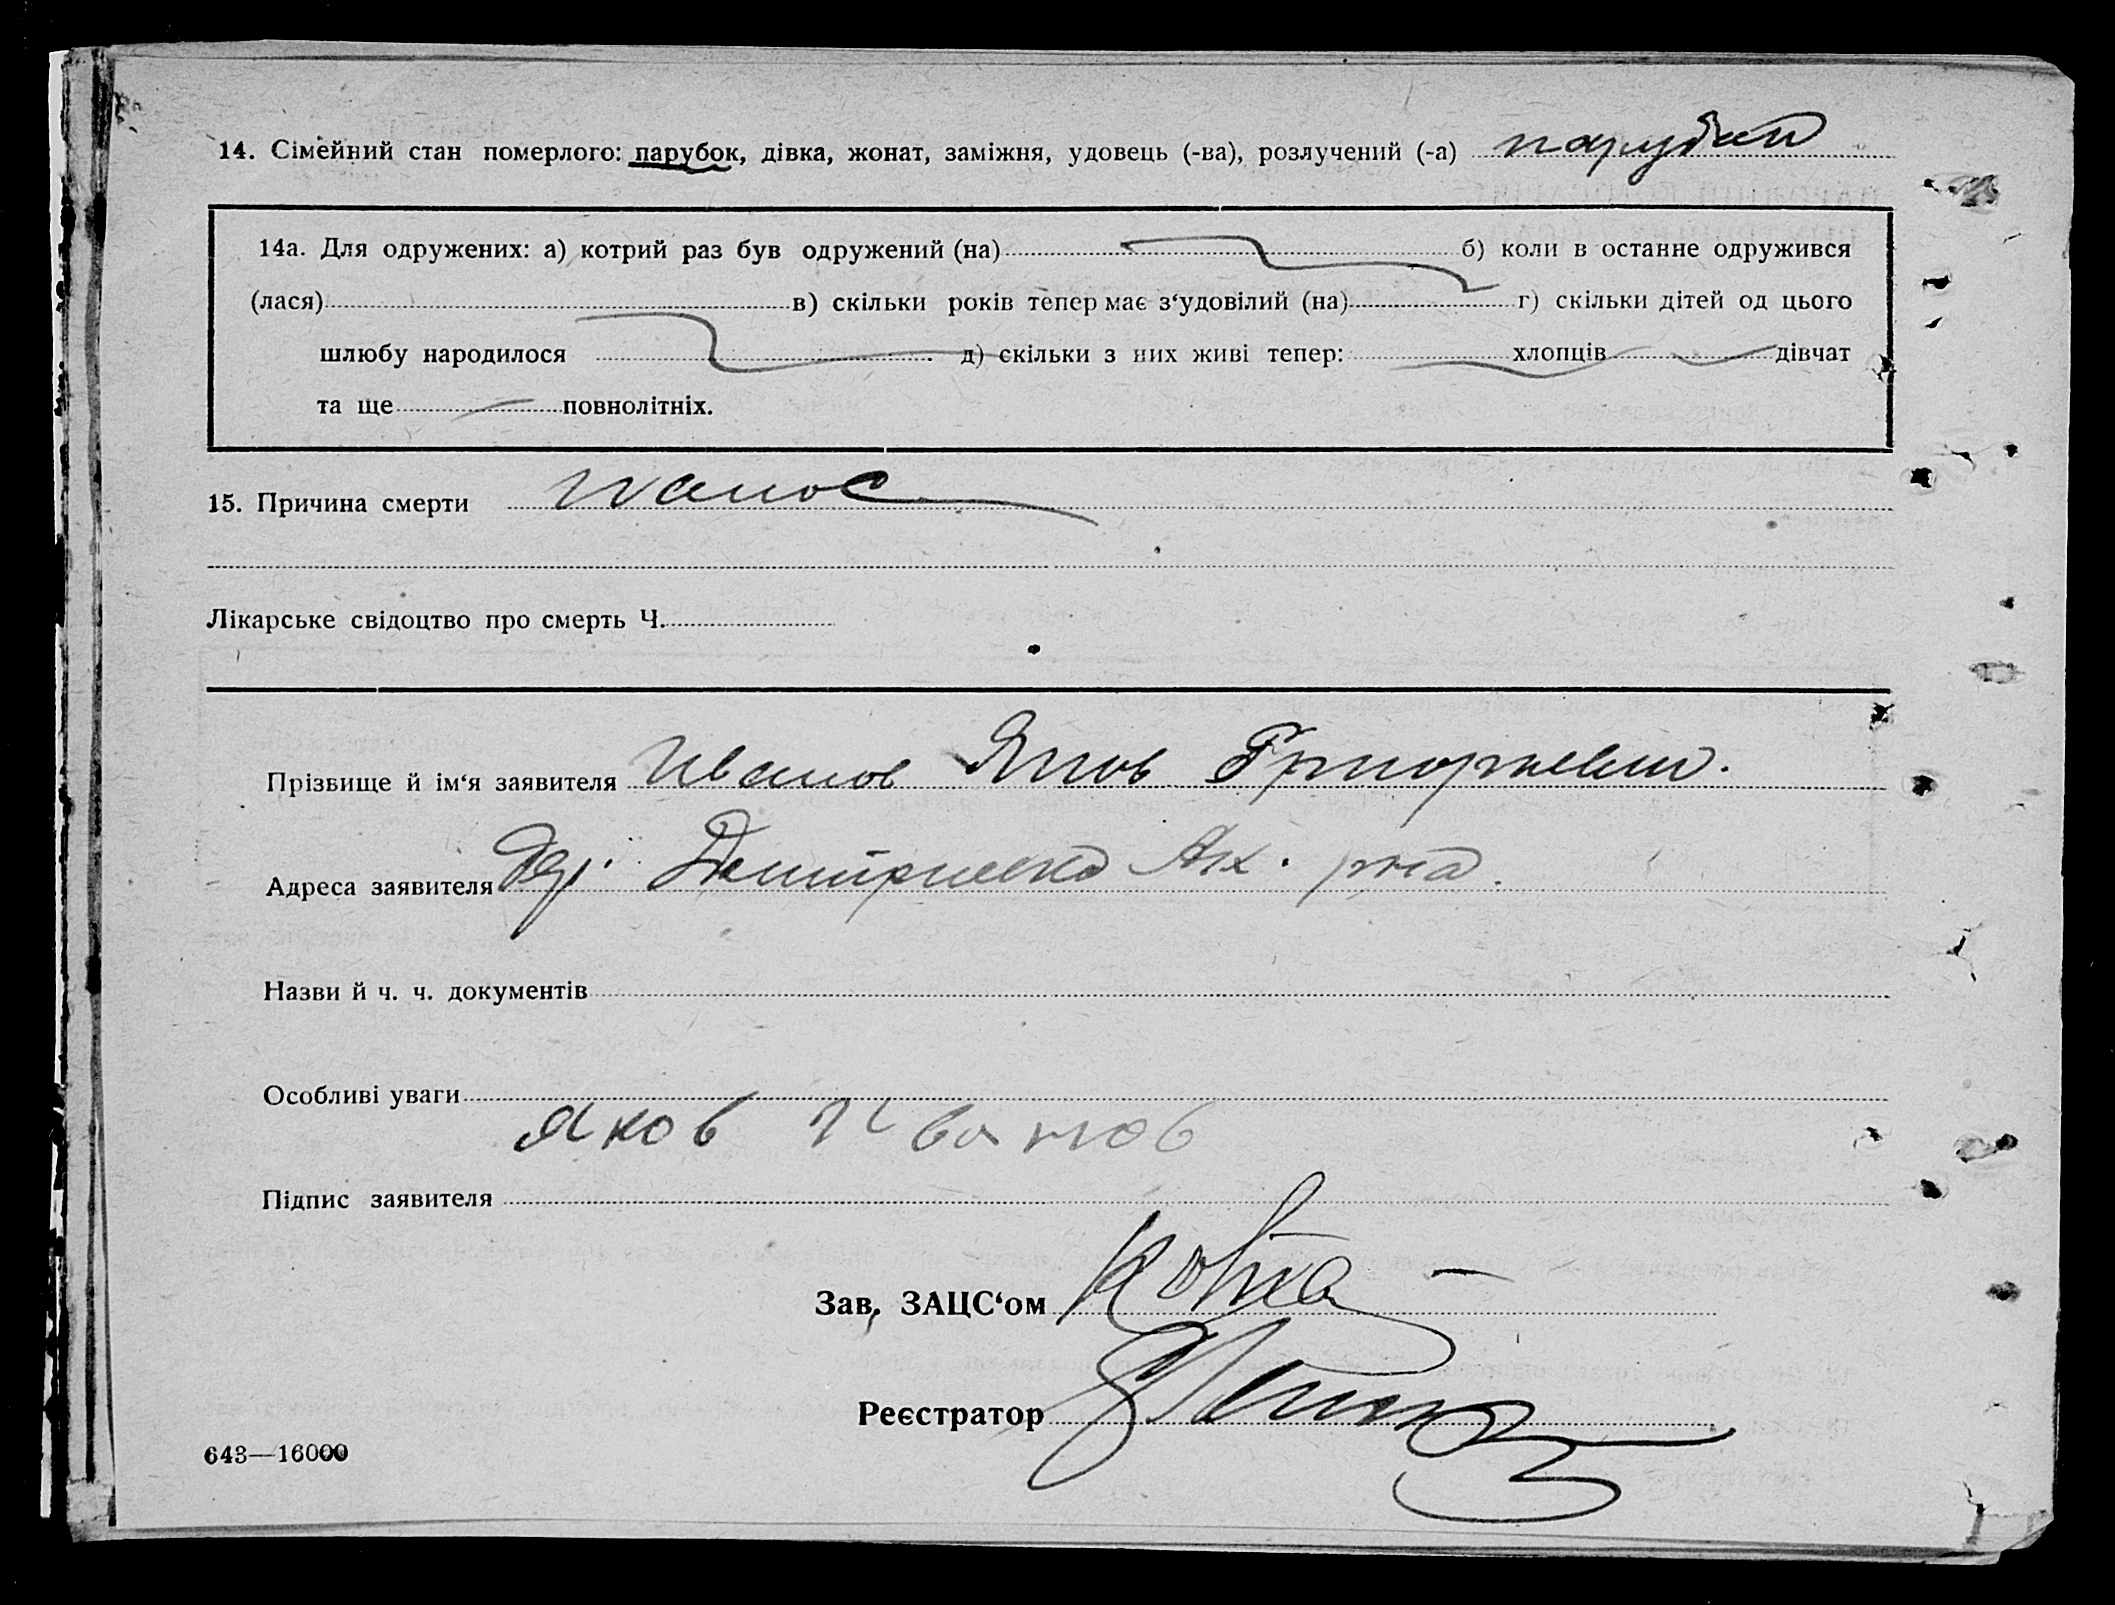 14. Сімейний стан померлого: парубок, дівка, жонат, заміжня, удовець (-ва), розлучений (-а) парубок
14а. Для одружених: а) котрий раз був одружений (на) б) коли в останне одружився
(лася) в) скільки років тепер має з‘удовілий (на) г) скільки дітей од цього
шлюбу народилося д) скільки з них живі тепер: хлопців дівчат
та ще повнолітніх.
15. Причина смерти понос
Лікарське свідоцтво про смерть Ч.
Прізвище й ім‘я заявителя Иванов Яков Григориевич.
Адреса заявителя дер. Дмитриевка
Назви й ч. ч. документів
Особливі уваги
Яков Иванов
Підпис заявителя
Зав. ЗАЦС‘ом
Реєстратор
643—16000